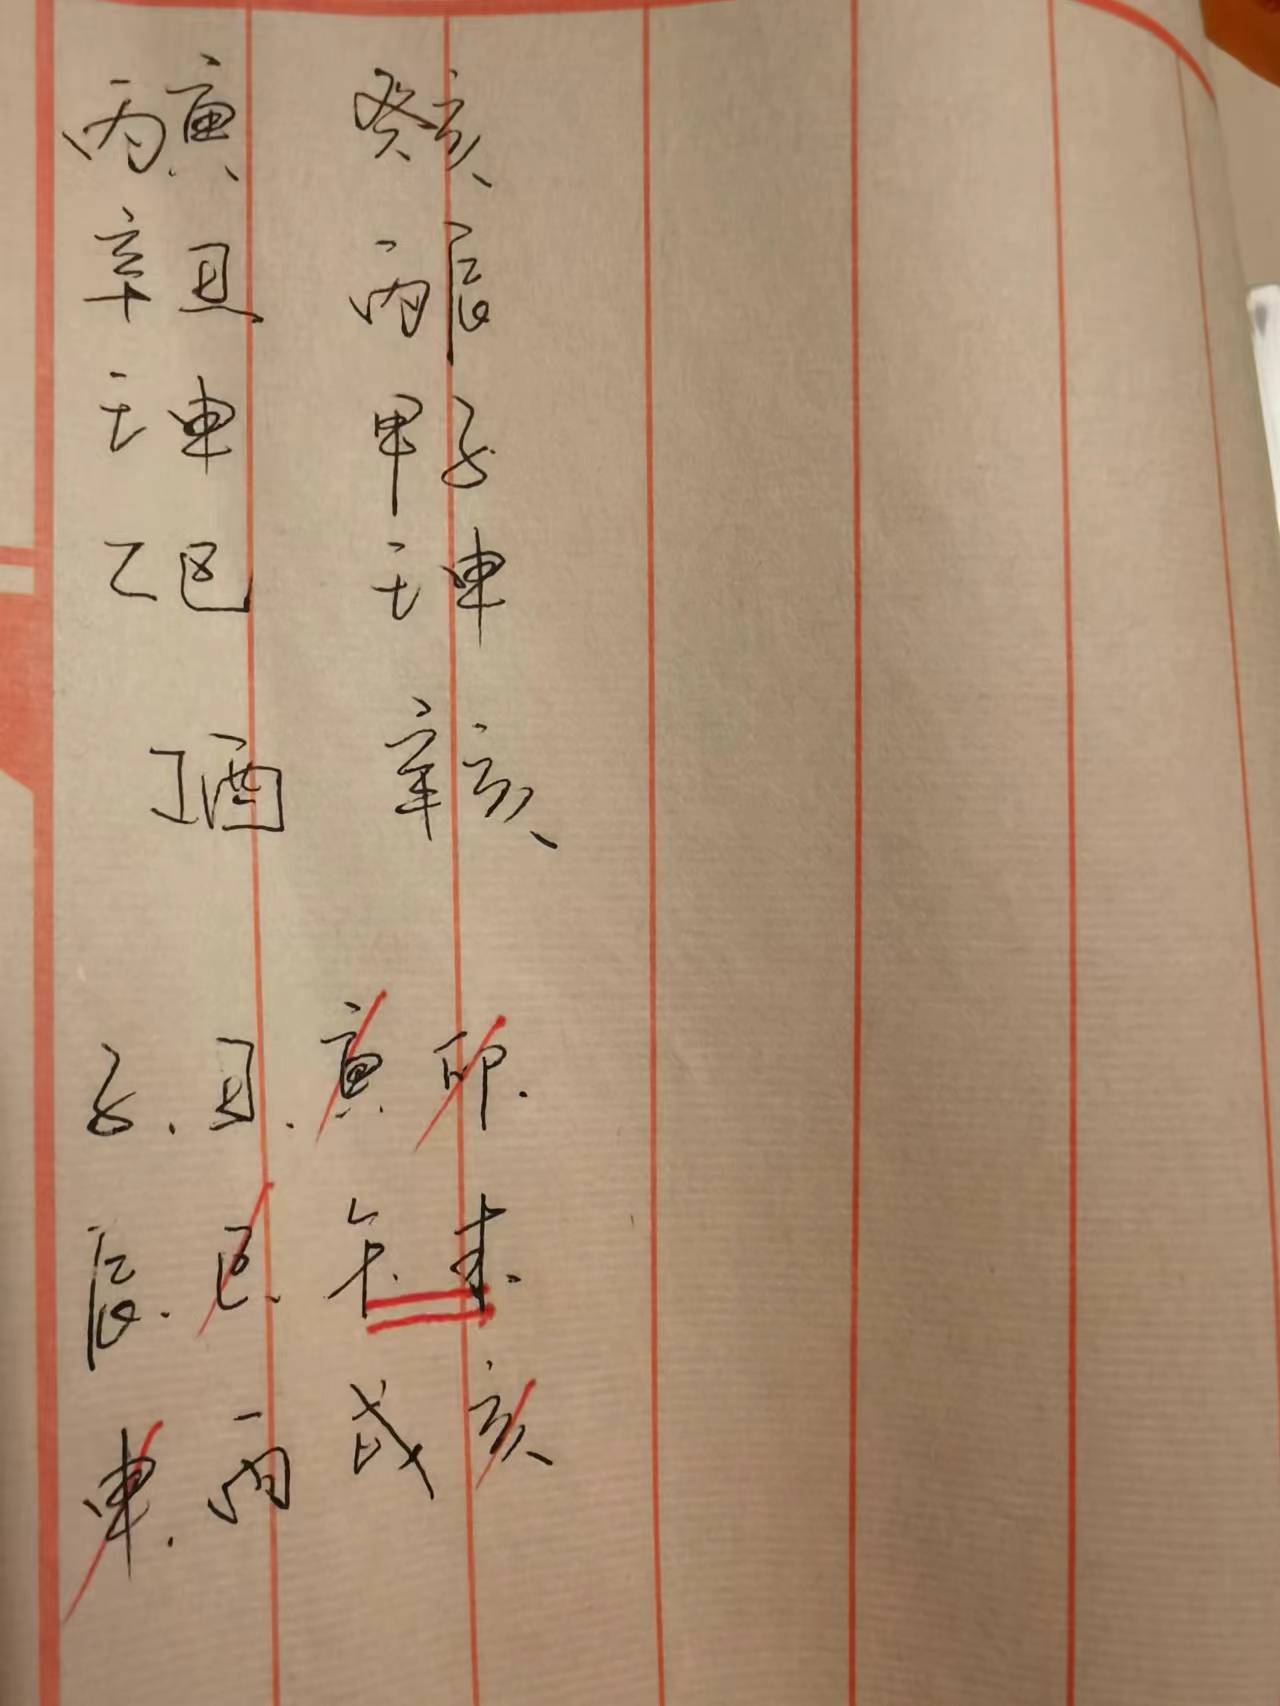 丙寅 癸亥
辛丑 丙辰
壬申 甲子
乙巳 壬申
丁酉 辛亥
子.丑.寅 卯.
辰.巳.午.未.
申.丙 戌 亥